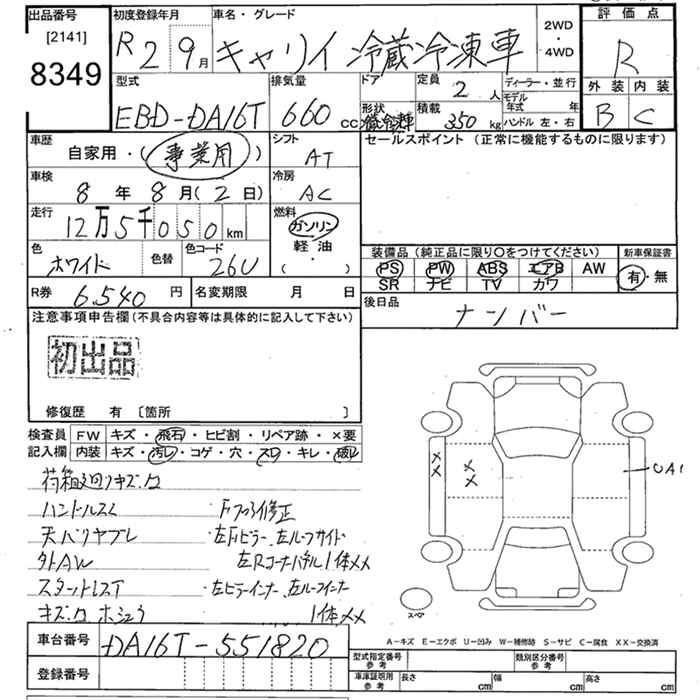 出品番号
[2141]
8349
初度登録年月
R2 9月
車名・グレード
キャリイ 冷蔵冷凍車
2WD
・
4WD
評価点
R
外装 内装
B C
型式
EBD-DA16T
排気量
660 cc
ドア
形状
冷蔵冷凍車
定員
2人
積載
350 kg
ディーラー・並行
モデル
年式 年
ハンドル 左・右
車歴
自家用・(事業用)
シフト
AT
セールスポイント (正常に機能するものに限ります)
車検
8年8月(2日)
冷房
AC
走行
12万5千050km
燃料
ガソリン
軽油
( ・ )
色
ホワイト
色替
色コード
26U
装備品 (純正品に限り〇をつけてください)
PS PW ABS エアB AW
SR ナビ TV カワ
新車保証書
有・無
R券 6,540円
名変期限 月 日
後日品
ナンバー
注意事項申告欄(不具合内容等は具体的に記入して下さい)
初出品
修復歴 有 〔箇所 〕
検査員
記入欄
FW キズ・飛石・ヒビ割・リペア跡・×要
内装 キズ・汚レ・コゲ・穴・スレ・キレ・破レ
荷箱廻りキズ
ハンドルスレ
天バリヤブレ 左Fピラー、左ルーフサイド
外AW 左Rコーナーパネル1体××
スタットレスT 左ピラーインナー、左ルーフインナー
キズ ホシュウ 1体××
××
××
スペア
A-キズ E-エクボ U-凹み W-補修跡 S-サビ C-腐食 XX-交換済
車台番号 DA16T-551820
登録番号
型式指定番号
参考
類別区分番号
参考
車庫証明用
参考
長さ cm
幅 cm
高さ cm